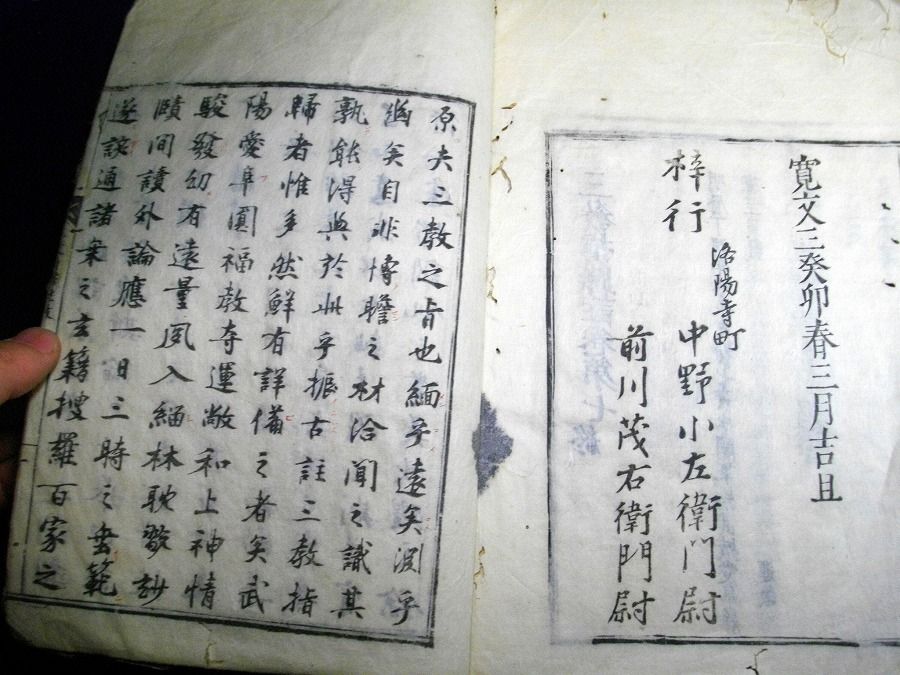 寛文三癸卯春三月吉旦
洛陽寺町
梓行 中野小左衛門尉
前川茂右衛門尉
原夫三教之旨也緬乎遠矣淵乎
幽矣自非博瞻之材洽聞之識其
孰能得與於此乎振古註三教指
歸者惟多然鮮有詳備之者矣武
陽愛阜圓福教寺運敞和上神情
駿發幼有遠量夙入緇林耽翫
賾間讀外論應一日三時之垂範
遂該通諸乗之玄籍捜羅百家之